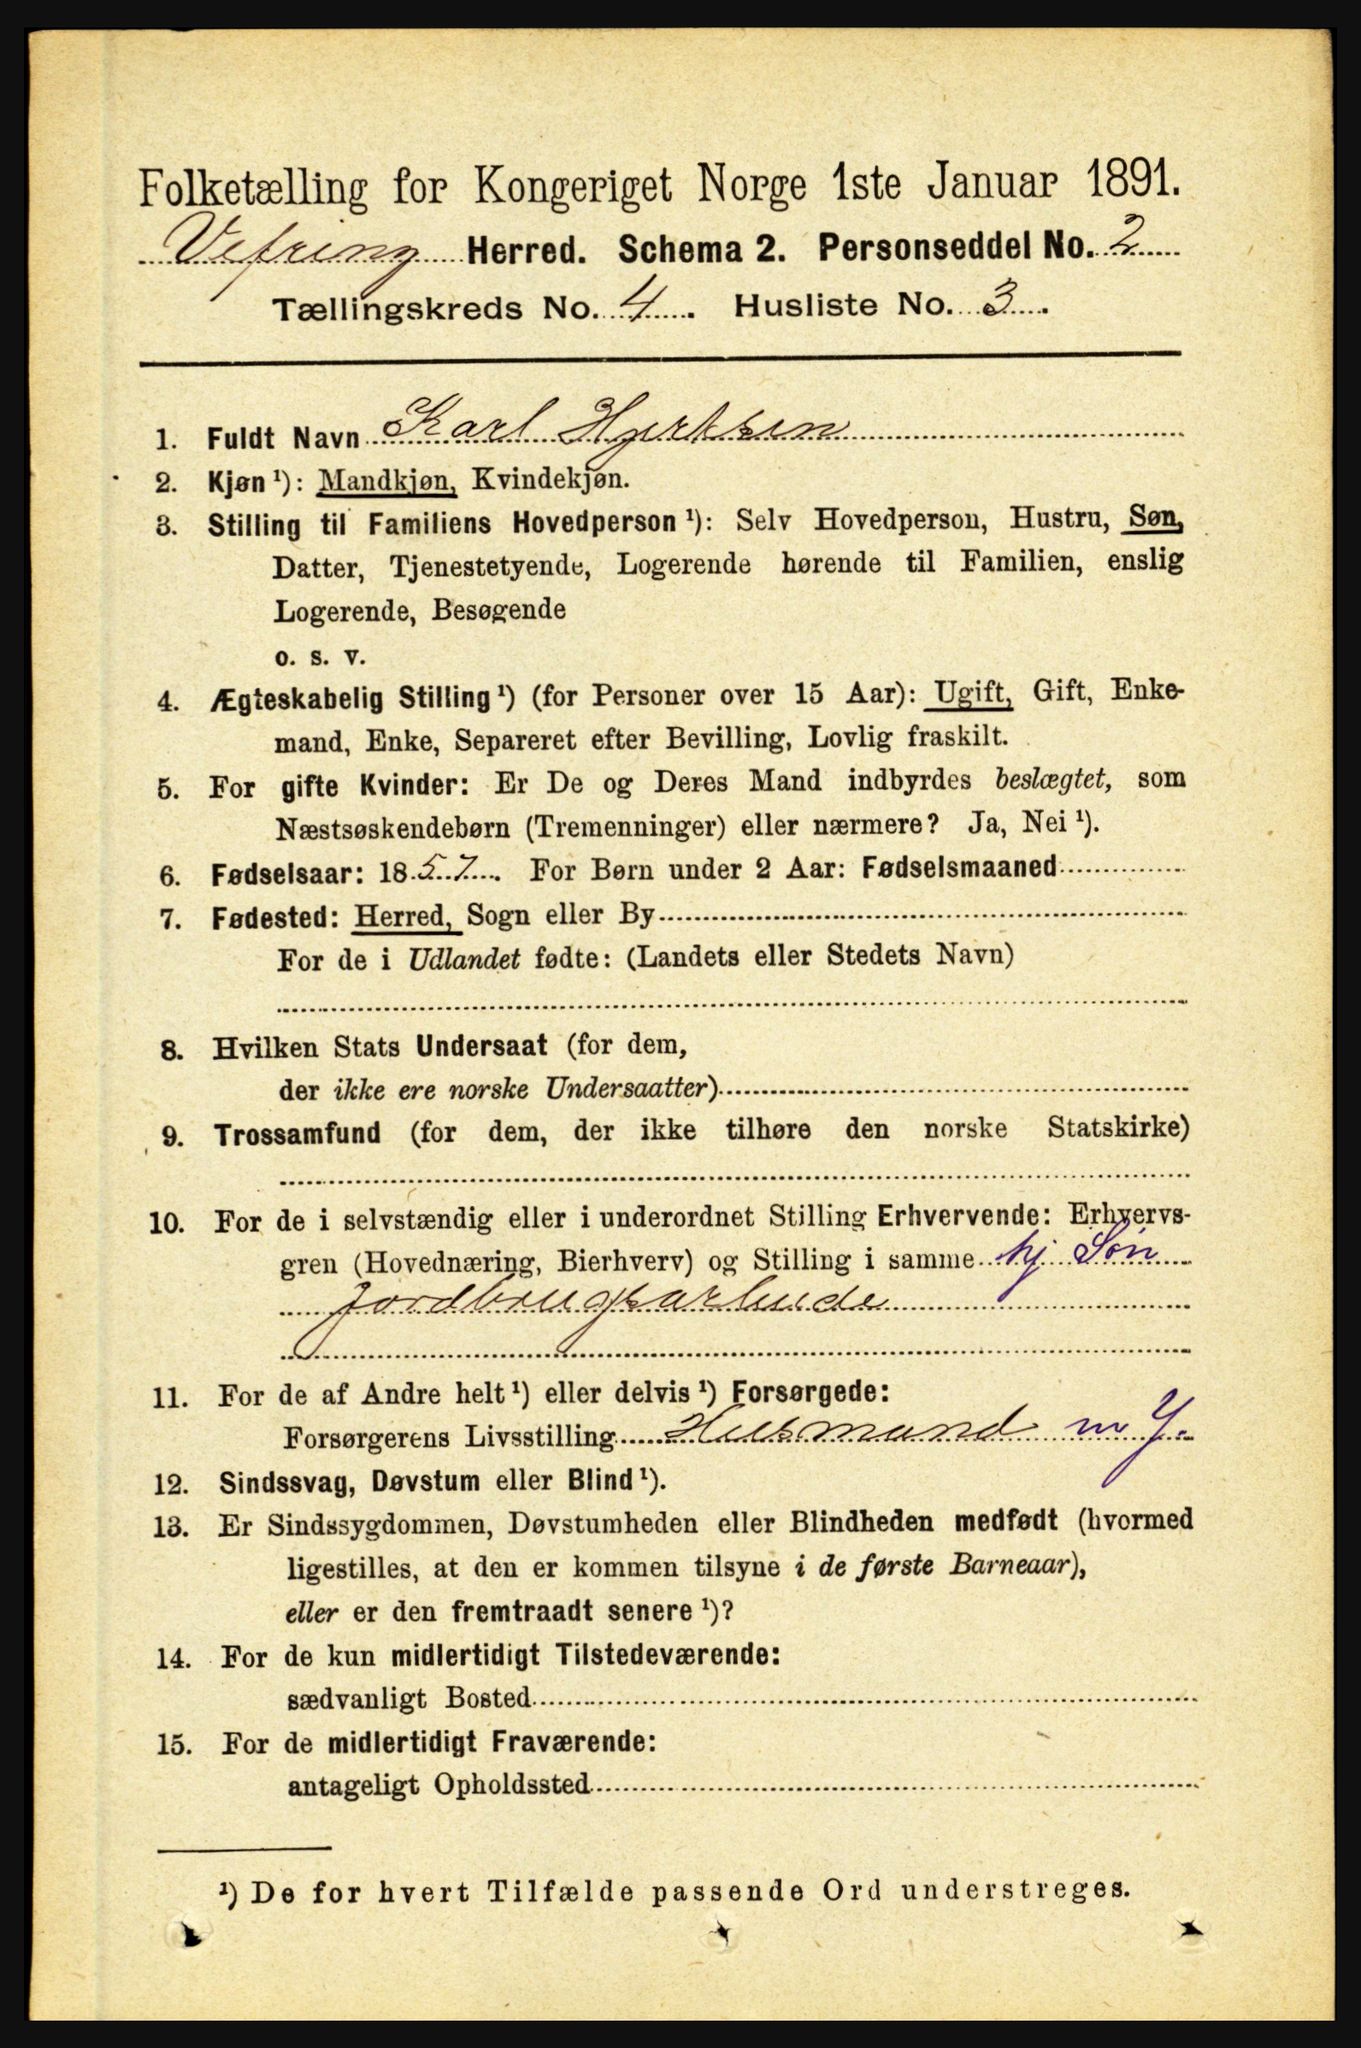 Folketælling for Kongeriget Norge 1ste Januar 1891.
Vefring Herred. Schema 2. Personseddel No. 2
Tællingskreds No. 4. Husliste No. 3.
1. Fuldt Navn Karl Hjertsen
2. Kjøn ¹): Mandkjøn, Kvindekjøn.
3. Stilling til Familiens Hovedperson ¹): Selv Hovedperson, Hustru, Søn,
Datter, Tjenestetyende, Logerende hørende til Familien, enslig
Logerende, Besøgende
o. s. v.
4. Ægteskabelig Stilling ¹) (for Personer over 15 Aar): Ugift, Gift, Enke-
mand, Enke, Separeret efter Bevilling, Lovlig fraskilt.
5. For gifte Kvinder: Er De og Deres Mand indbyrdes beslægtet, som
Næstsøskendebørn (Tremenninger) eller nærmere? Ja, Nei ¹).
6. Fødselsaar: 1857. For Børn under 2 Aar: Fødselsmaaned
7. Fødested: Herred, Sogn eller By
For de i Udlandet fødte: (Landets eller Stedets Navn)
8. Hvilken Stats Undersaat (for dem,
der ikke ere norske Undersaatter)
9. Trossamfund (for dem, der ikke tilhøre den norske Statskirke)
10. For de i selvstændig eller i underordnet Stilling Erhvervende: Erhvervs-
gren (Hovednæring, Bierhverv) og Stilling i samme hj. Søn
Jordbrugsarbeide
11. For de af Andre helt ¹) eller delvis ¹) Forsørgede:
Forsørgerens Livsstilling Husmand m J.
12. Sindssvag, Døvstum eller Blind ¹).
13. Er Sindssygdommen, Døvstumheden eller Blindheden medfødt (hvormed
ligestilles, at den er kommen tilsyne i de første Barneaar),
eller er den fremtraadt senere ¹)?
14. For de kun midlertidigt Tilstedeværende:
sædvanligt Bosted
15. For de midlertidigt Fraværende:
antageligt Opholdssted
¹) De for hvert Tilfælde passende Ord understreges.